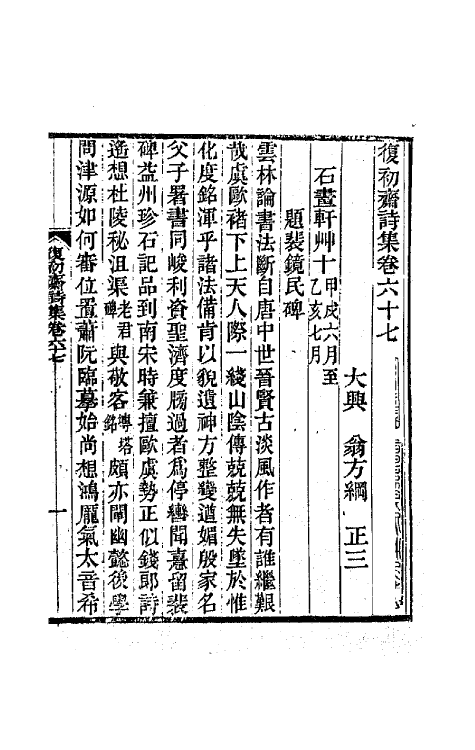 復初齋詩集卷六十七
大興　翁方綱　正三
石畫軒艸十甲戌六月至乙亥七月
題裴鏡民碑
雲林論書法斷自唐中世晉賢古淡風作者有誰繼艱
哉虞歐褚下上天人際一綫山陰傳兢兢無失墜於惟
化度銘渾乎諸法備肯以貌遺神方整變遒媚殷家名
父子署書同峻利資聖濟度腸過者為停轡聞憙留裴
碑益州珍石記品到南宋時兼擅歐虞勢正似錢郎詩
遙想杜陵秘沮渠老君碑與敬客塼塔銘頗亦闡幽懿後學
問津源如何審位置蕭阮臨摹始尚想鴻龐氣太音希
復初齋詩集卷六七
一